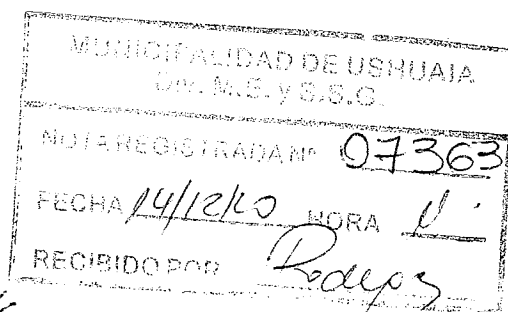 MUNICIPALIDAD DE USHUAIA
Div. M.E. y S.S.G.
NOTA REGISTRADA Nº 07363
FECHA 14/12/20 HORA
RECIBIDO POR